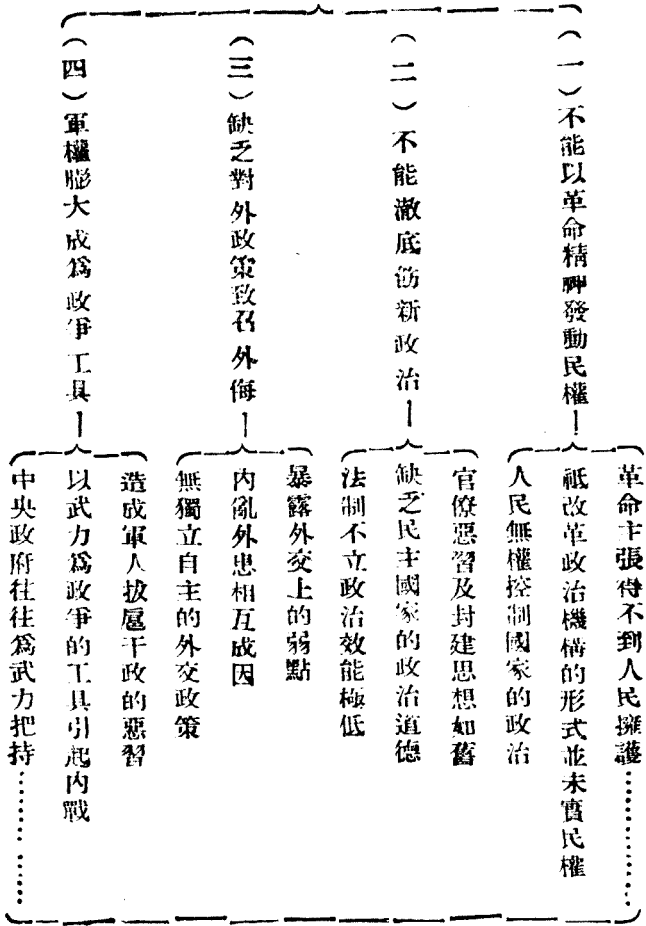 (一)不能以革命精神發動民權
革命主張得不到人民擁護
祗改革政治機構的形式並未實民權
人民無權控制國家的政治
(二)不能澈底㓝新政治
官僚惡習及封建思想如舊
缺乏民主國家的政治道德
法制不立政治效能極低
(三)缺乏對外政策致召外侮
暴露外交上的弱點
內亂外患相互成因
無獨立自主的外交政策
(四)軍權膨大成爲政爭工具
造成軍人拔扈干政的惡習
以武力爲政爭的工具引起內戰
中央政府往往爲武力把持